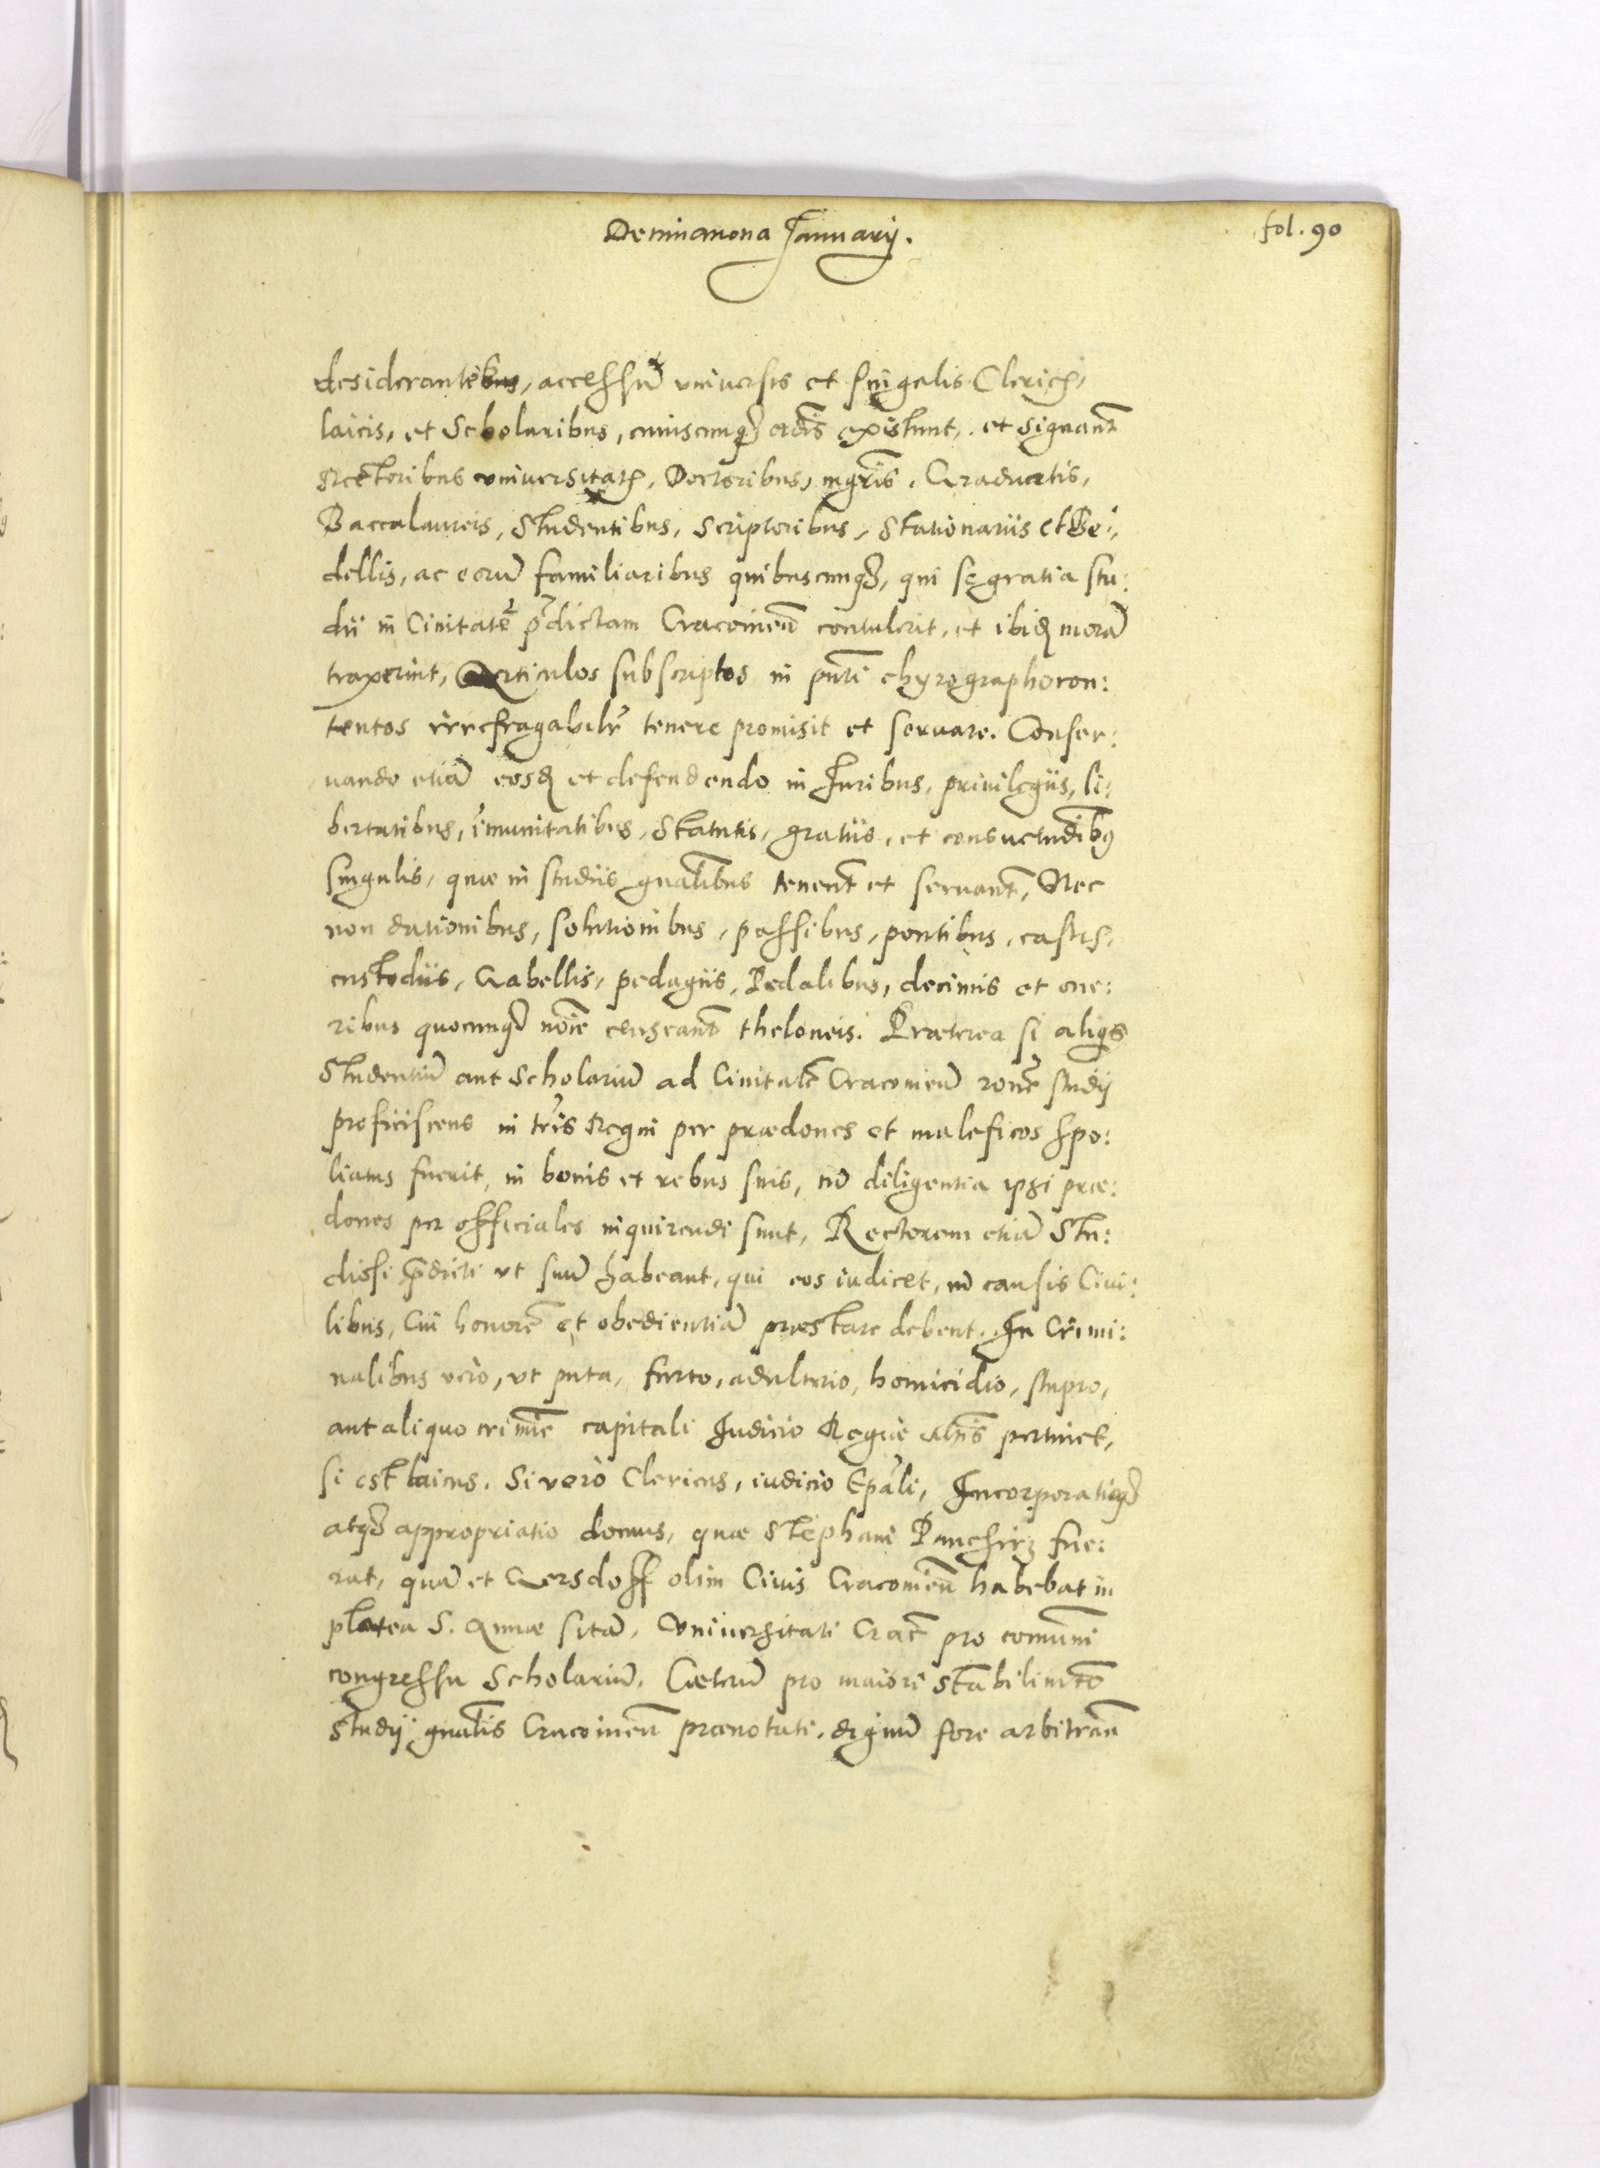 Decimanona Januarij.
fol. 90
desiderantibus, accessũ vniuersis et singulis Clericis,
laicis, et Scholaribus, cuiuscunq₃ ordĩs existunt, et signanť
Rectoribus vniuersitatis, Doctoribus, mgrĩs, Graduatis,
Baccalaureis, Studentibus, Scriptoribus, Stationariis et Be:
dellis, ac eorũ familiaribus quibuscunq₃, qui se gratia stu:
dii in Ciuitatẽ p̃dictam Cracouieñ contulerit, et ibiđ morã
traxerint, Articulos subscriptos in pñti chyrographo con:
tentos irrefragabilr̃ tenere promisit et seruare. Conser:
uando etiã eosđ et defendendo in Juribus, priuilegiis, li:
bertatibus, im̃unitatibus, Statutis, gratiis, et consuetudĩbꝰ
singulis, quæ in studiis gñalibus tenenť et seruanť, Nec
non dationibus, solutionibus, passibus, pontibus, castris,
custodiis, Gabellis, pedagiis, Pedalibus, decimis et one:
ribus quocunq₃ noĩe censeanť theloneis. Præterea si aliqis
Studentiũ aut Scholariũ ad Ciuitatẽ Cracouieñ ronẽ studij
proficiscens in tr̃is Regni per prædones et maleficos spo:
liatus fuerit, in bonis et rebus suis, cũ diligentia ipsi præ:
dones per officiales inquirendi sunt, Rectorem etiã Stu:
diosi p̃dicti vt suũ habeant, qui eos iudicet, in causis Ciui:
libus, Cui honorẽ et obedientiã præstare debent. In Crimi:
nalibus verò, vt puta, furto, adulterio, homicidio, stupro,
aut aliquo crimĩe capitali Judicio Regiæ Mtis pertinet,
si est laicus. Si verò Clericus, iudicio Ep̃ali, Incorporatioq₃
atq₃ appropriatio domus, quæ Stephani Panchirz fue:
rat, quã et Gersdoff olim Ciuis Cracouieñ habebat in
platea S. Annæ sitã, Vniuersitati Crać pro com̃uni
congressu Scholariũ. Cæterũ pro maiori stabilimẽto
studij gñalis Cracouieñ prænotati, dignũ fore arbitrañ